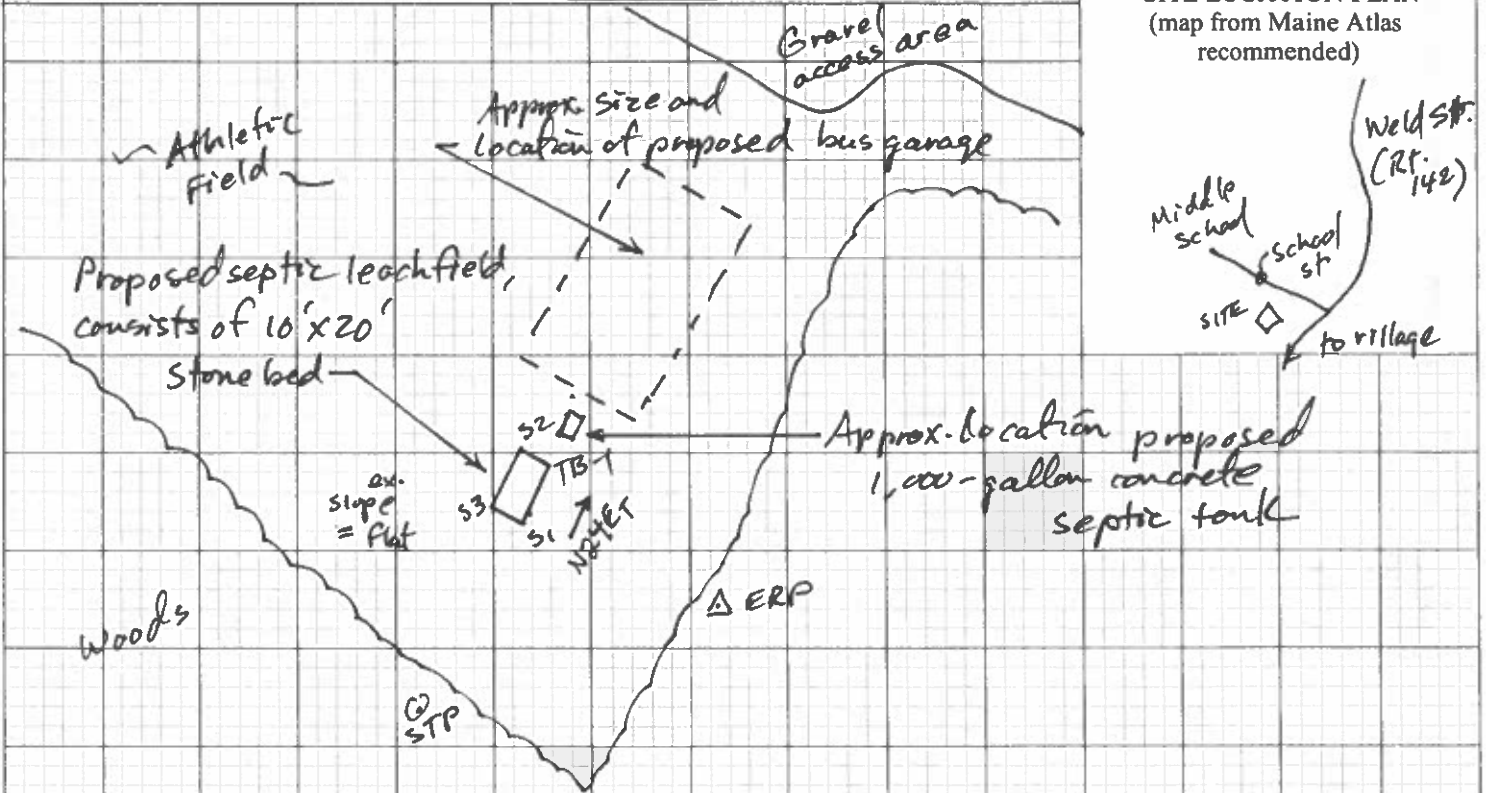 (map from Maine Atlas
recommended)
Gravel
access area
Approx. size and
location of proposed bus garage
Athletic
Field
Weld St.
(Rt.
142)
Middle
school
School
st
SITE
to village
Proposed septic leachfield,
consists of 10'x20'
Stone bed
S2
TB-1
Approx. location proposed
1,000-gallon concrete
septic tank
ex.
slope
= flat
S3
S1
ERP
Woods
STP